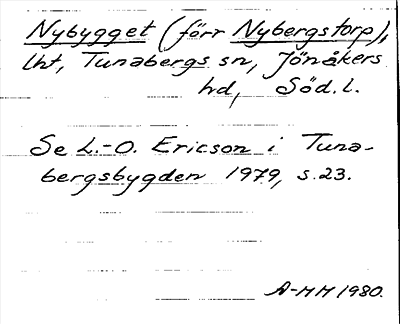 Nybygget (förr Nybergstorp),
lht, Tunabergs sn, Jönåkers
hd, Söd. l.
Se L.-O. Ericson i Tuna-
bergsbygden 1979, s.23.
A-MM 1980.